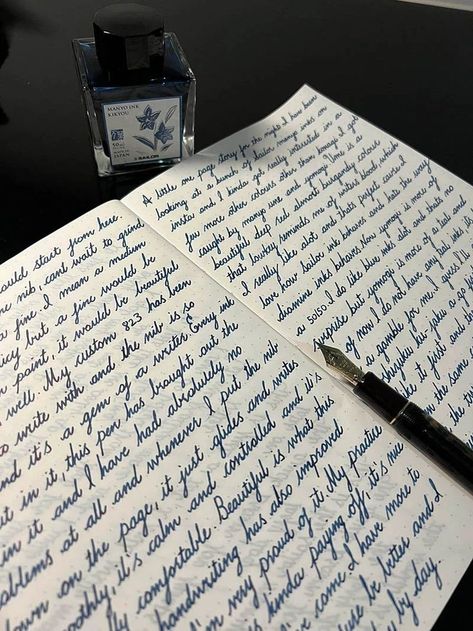 MANYO INK
KIKYOU
50ml
MADE IN
JAPAN
SAILOR
could start from here.
nib, cant wait to grind
fine. I mean a medium
juicy but a fine would be
point, it would be beautiful
well. My custom 823 has been
to write with and the nib is so
and it's a gem of a writer. Every ink
put in it, this pen has brought out the
in it and I have had absolutely no
problems at all and whenever I put the nib
down on the page, it just glides and writes
smoothly, it's calm and controlled and it's
really comfortable. Beautiful is what this
handwriting has also improved
I'm very proud of it. My practice
is kinda paying off, it's nice
come. I have more to
because bc bites and I
by day.
A little one page story for the night. I have been
looking at a bunch of Sailor manyo inks on
insta and I kinda got really interested in a
few more colours other than konagi. I got
caught by manyo ume and yomogi. Ume is a
beautiful deep red almost burgandy colour
that lowkey reminds me of writers blood which
I really like alot and thats perfect cause I
love how sailor ink behaves and hate the way
diamine inks behaves. Now yomogi is more of
a so so. I do like blue inks alot and thats no
surprise but yomogi is more of a teal and
of now I do not have any teal inks
a gamble for me I guess
shigyoku
it just
on the same